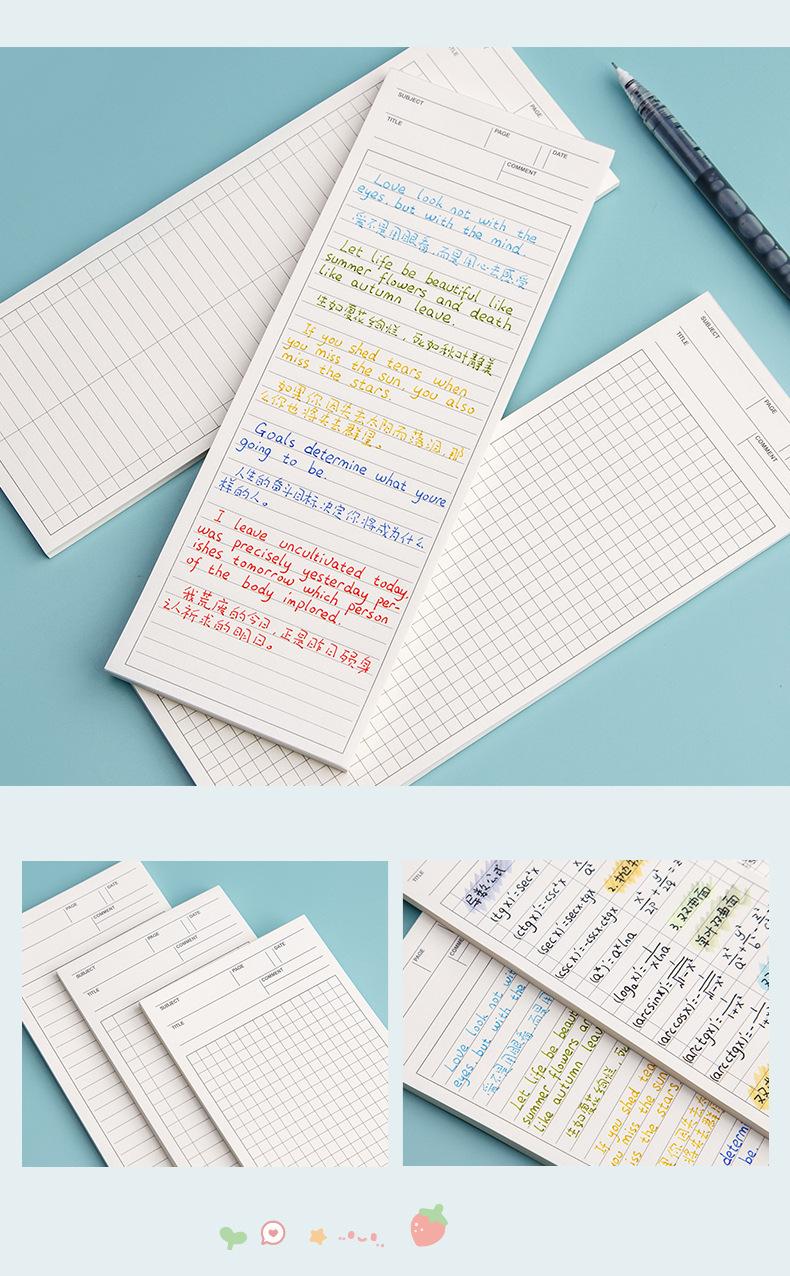 PAGE
SUBJECT
TITLE
PAGE
DATE
COMMENT
Love look not with the
eyes, but with the mind.
爱不是用眼看,而是用心去感受
Let life be beautiful like
summer flowers and death
like autumn leave.
生如夏花绚烂,死如秋叶静美
If you shed tears when
you miss the sun, you also
miss the stars.
如果你因失去太阳而落泪,那
么你也将失去群星。
Goals determine what youre
going to be.
人生的奋斗目标决定你将成为什么
样的人。
I leave uncultivated today,
was precisely yesterday per-
ishes tomorrow which person
of the body implored.
我荒废的今日,正是昨日殒身
之人祈求的明日。
SUBJECT
TITLE
PAGE
COMMENT
PAGE
DATE
COMMENT
SUBJECT
PAGE
DATE
TITLE
COMMENT
SUBJECT
PAGE
DATE
TITLE
COMMENT
TITLE
导数公式
(tgx)'=sec²x
(ctgx)'=-csc²x
(secx)'=secx·tgx
(cscx)'=-cscx·ctgx
(aˣ)'=aˣlna
3.双曲面
单叶双曲面
PAGE
Love look not wit
eyes, but with the
爱不是用眼看,而是用
Let life be beaut
summer flowers an
like autumn leav
生如夏花绚烂,死
If you shed tea
you miss the sun
miss the stars
determ
be.